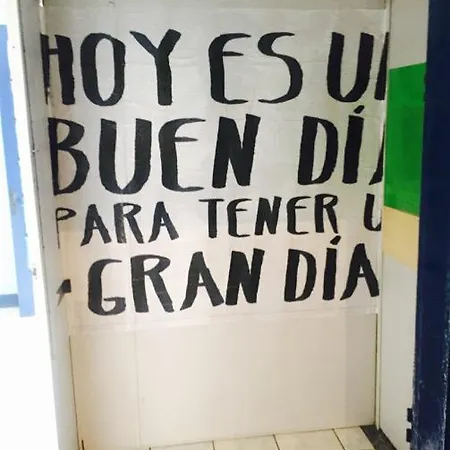 HOY ES U
BUEN DÍA
PARA TENER U
GRAN DÍA